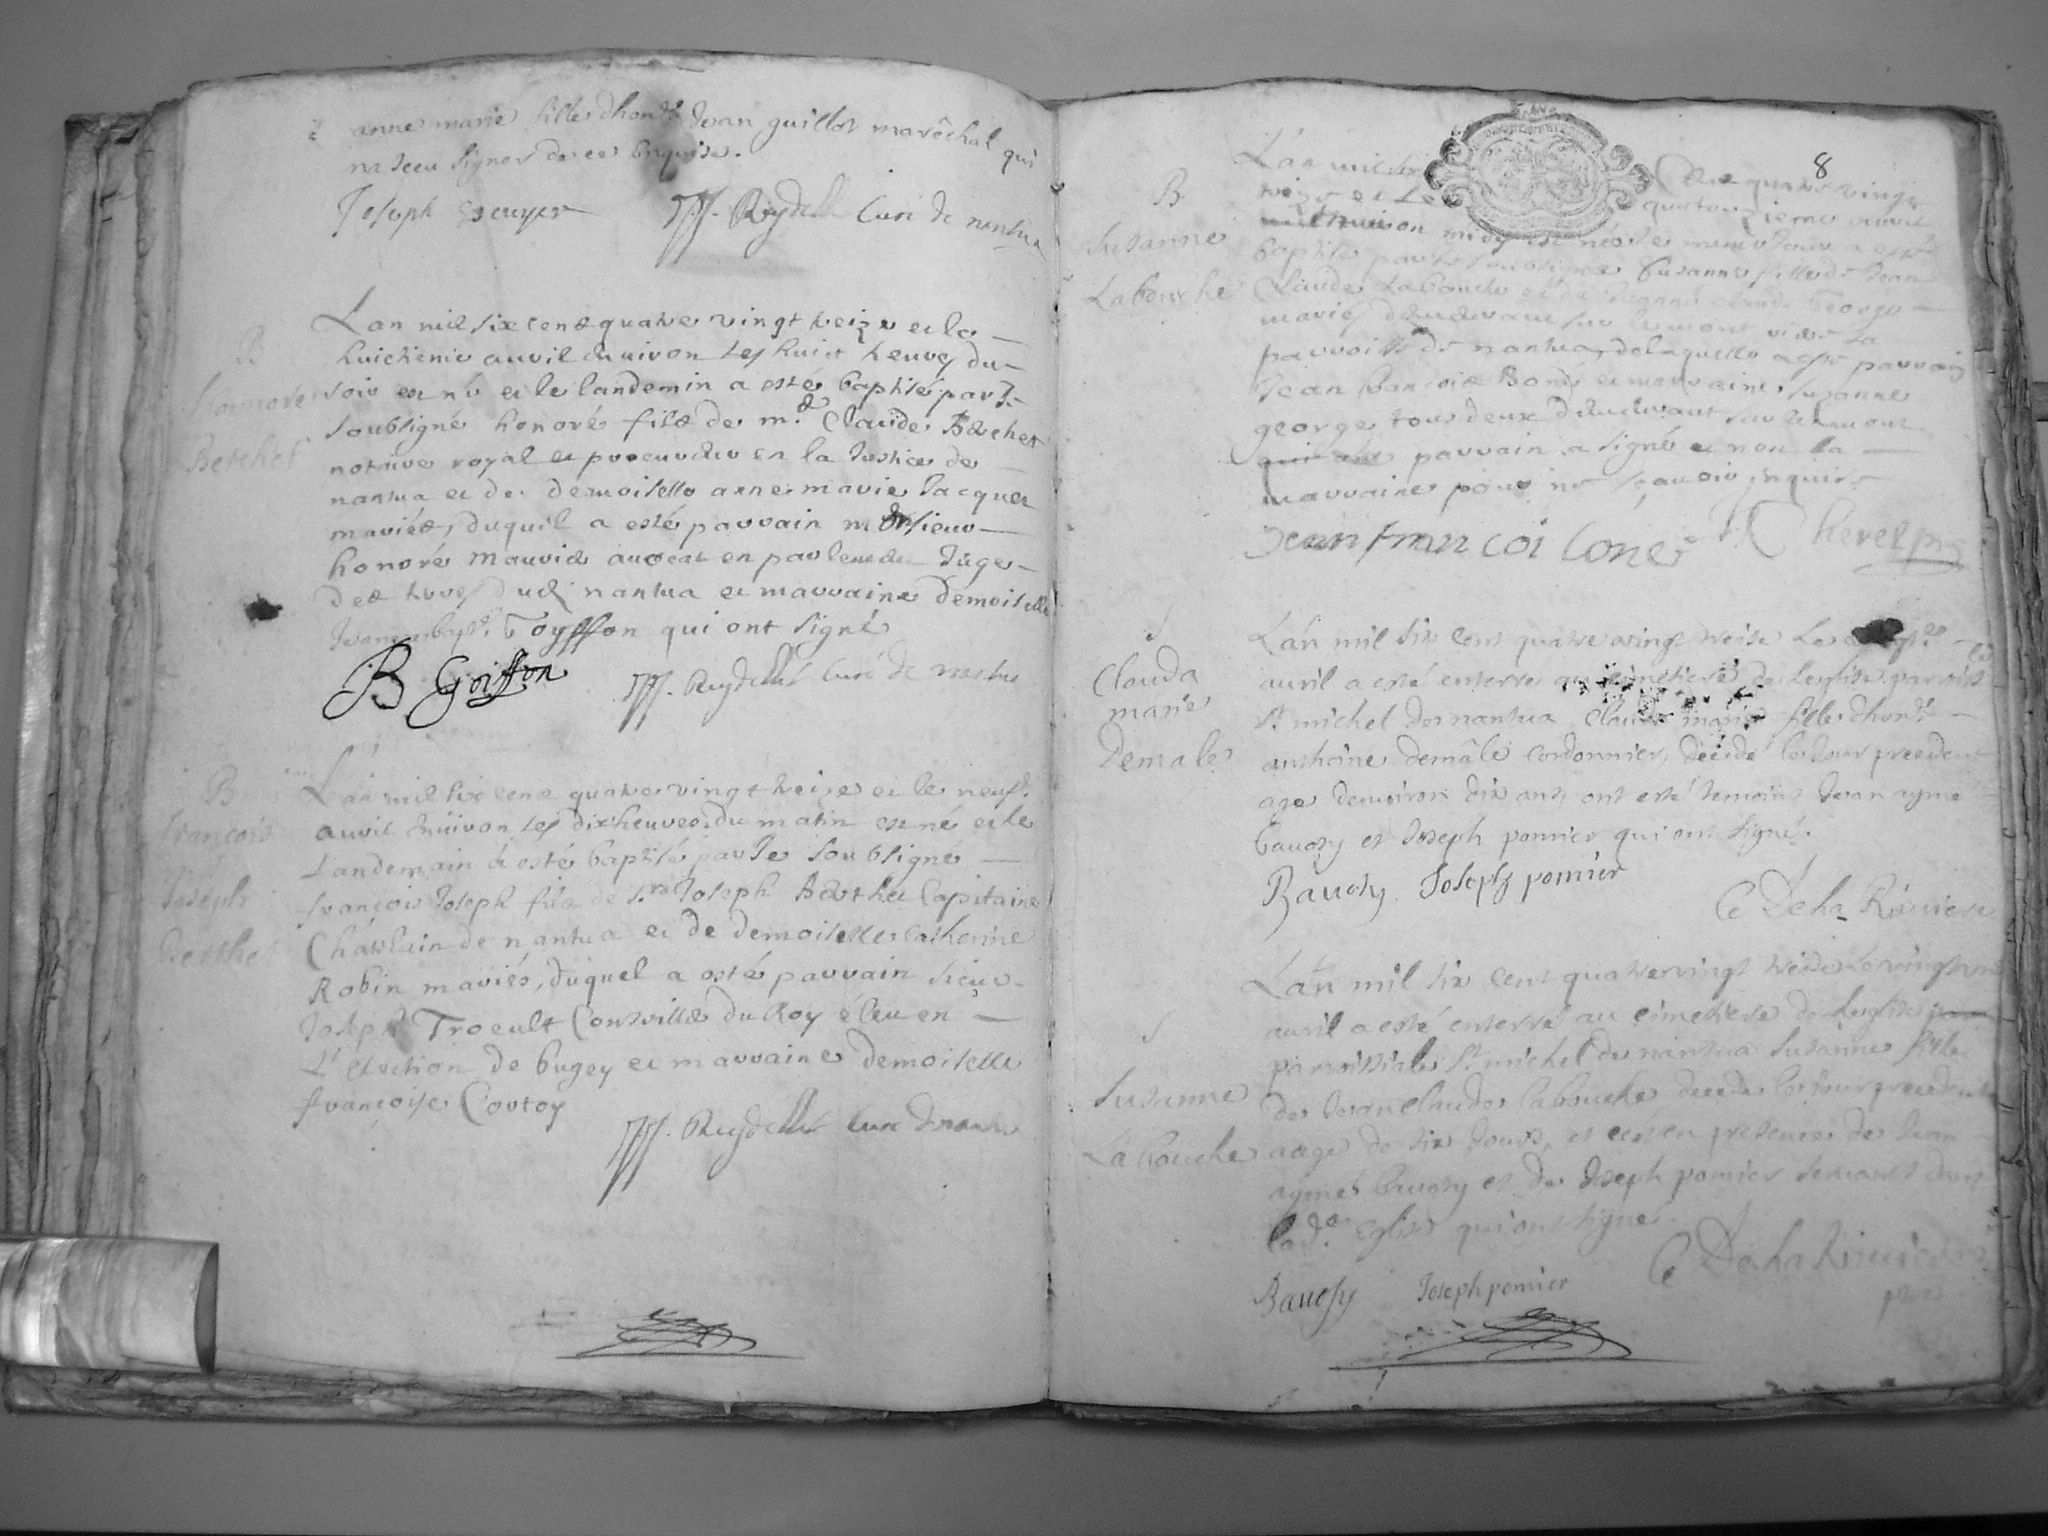 anne marie fille dhon.ble Jean guillot marêchal qui
na sceu signer de ce enquise.
Joseph Escuyer Reydellet Curé de nantua
B
honoré
Berthet
Lan mil six cent quatre vingt treize et le
huictieme avril environ les huict heures du
soir est né et le landemin a esté baptisé par Je
soubsigné honoré fils de m.e Claude Berthet
notaire royal et procureur en la Justice de
nantua et de demoiselle anne marie Jacquet
mariés, duquil a esté parrain monsieur
honoré Mauris avocat en parlement Juge
des terres dudt nantua et marraine demoiselle
Goyffon qui ont signé
B Goiffon Reydellet Curé de nantua
B
françois
Joseph
Berthet
Lan mil six cent quatre vingt treize et le neuf.
avril environ les dix heures du matin est né et le
Landemain a esté baptisé par Je soubsigné
françois Joseph fils de s.r Joseph Berthet Capitaine
Châtelain de nantua et de demoiselle Catherine
Robin mariés, duquel a esté parrain sieur
Joseph Trocult Conseiller du Roy éleu en
L'election de bugey et marraine demoiselle
françoise Courtoy
Reydellet Curé de nantua
8
B
Susanne
Labouche
Lan mil six Cent quatre vingt
treize et le quatorzieme avril
environ midy est née le mesme Jour a esté
baptisée par Je soubsigné Susanne fille de Jean
Claude Labouche et de Susanne George
mariés demeurant sur le mont
parroisse de nantua, de laquelle a esté parrain
Jean françois Bondet et marraine, suzanne
george tous deux demeurant sur le mont
parrain a signé et non la
marraine pour ne sçavoir enquise
Jean francoi Cone Cherel
S
Clauda
marie
Demale
Lan mil six cent quatre vingt treise Le
auril a esté enterré au cimetiere de Leglise parroiss
st michel de nantua Clauda marie fille dhon.ble
anthoine demâle cordonnier, decedé le Jour precedent
age denviron dix ans ont esté temoins Jean aymé
baudry et Joseph pomier qui ont signé.
Baudry Joseph pomier
C De la Riviere
S
Susanne
La bouche
Lan mil six cent quatrevingt treise Le vingt
auril a esté enterré au cimetiere de Leglise
parroissiale st michel de nantua Susanne fille
de Jean Claude labouche decedé le Jour precedent
aage de six Jours, et ce en presence de Jean
aymé baudry et de Joseph pomier servants dans
lad.e Eglise qui ont signé.
Baudry Joseph pomier C De la Riviere